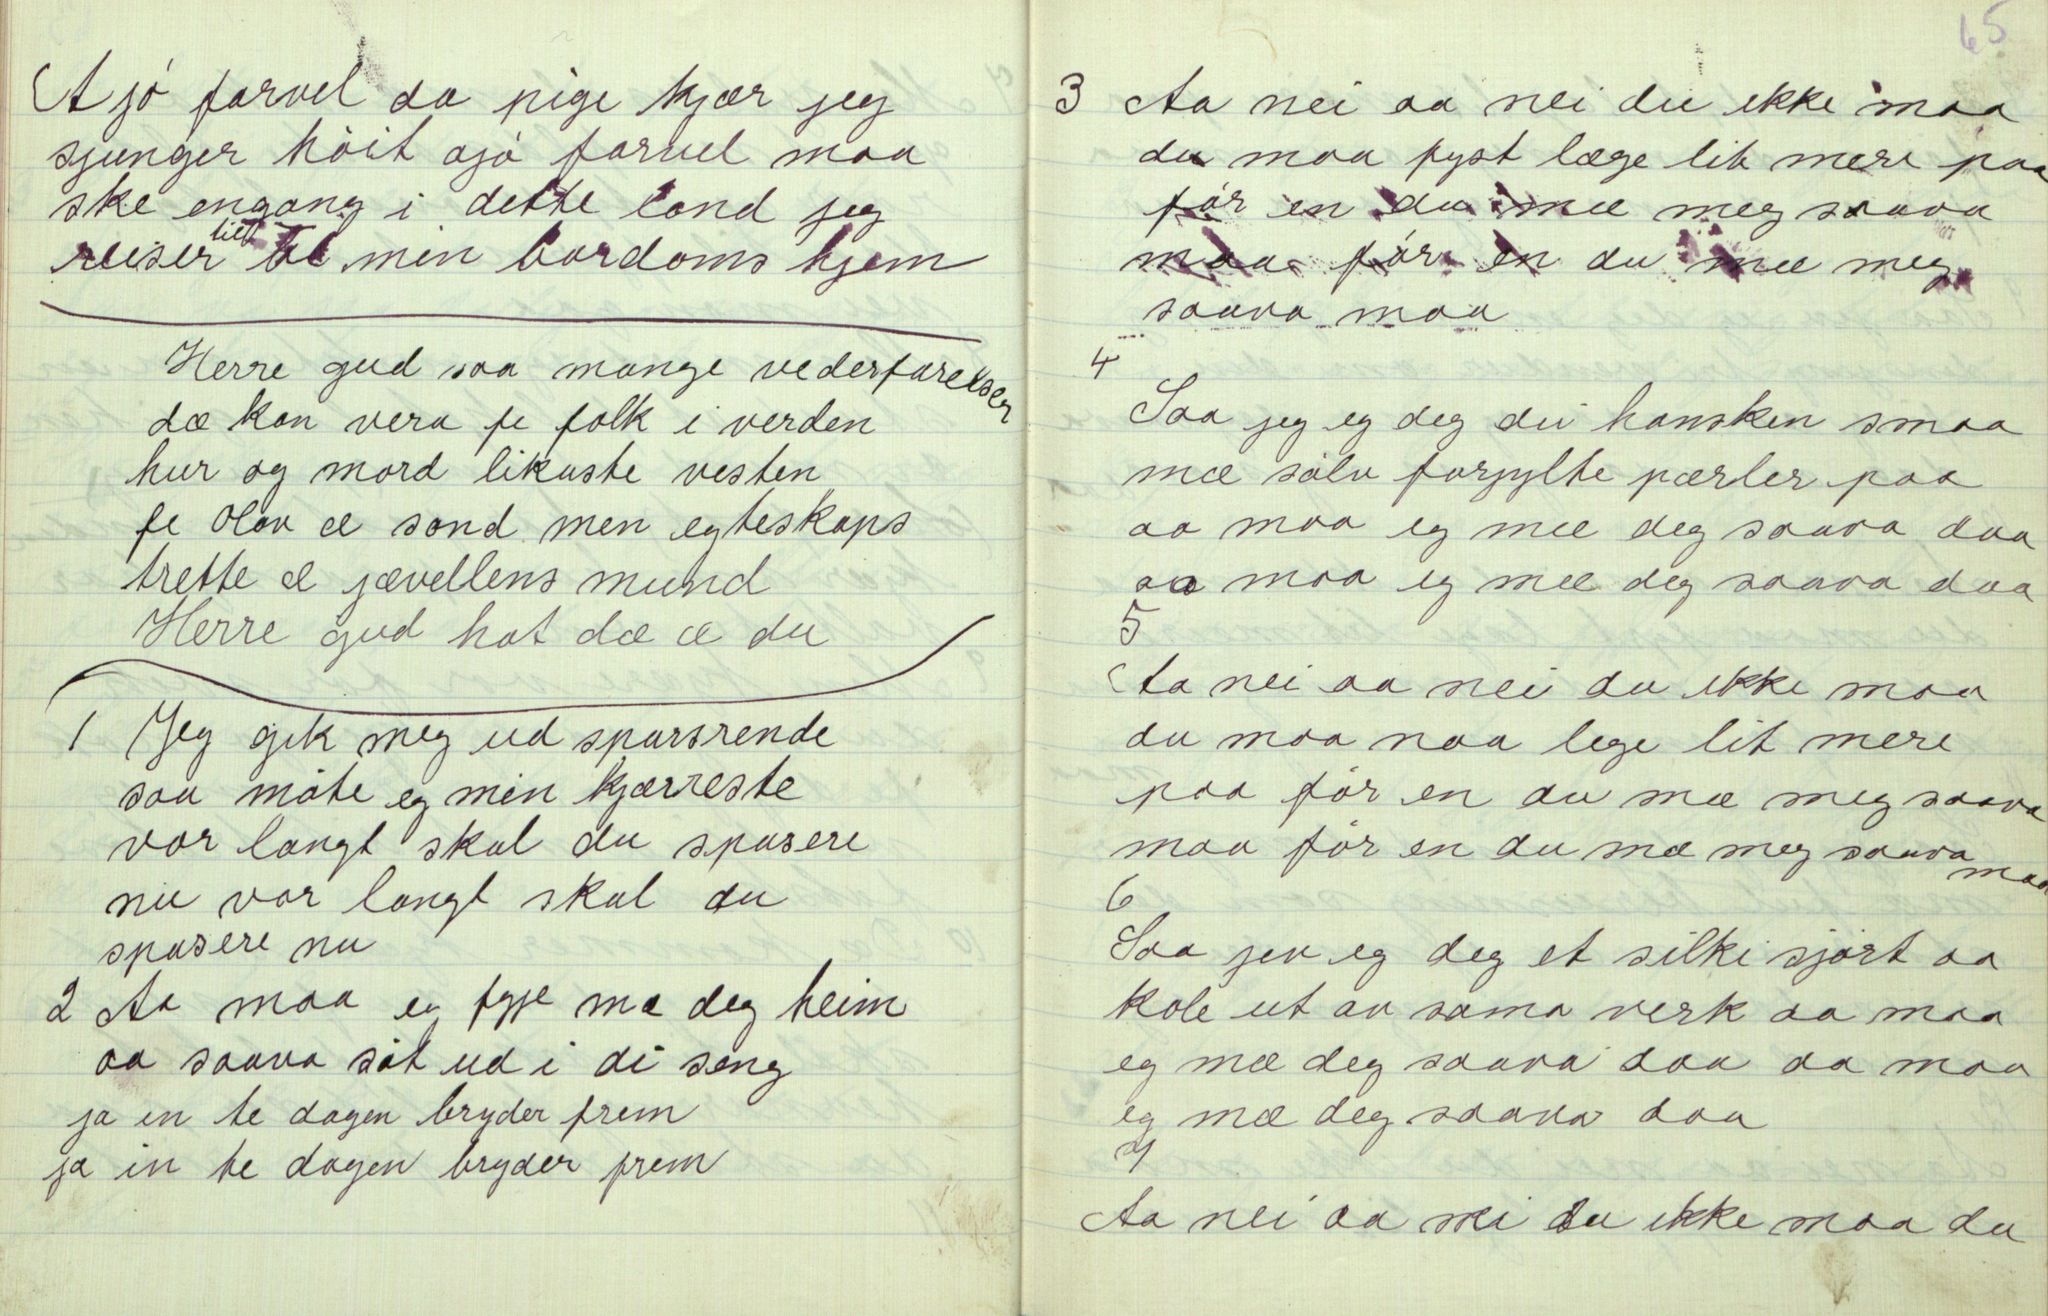 Ajó farvel da pige kjær jeg
sjunger höit ajó farvel maa
ske engang i dette land jeg
reiser till min bardoms hjem
Herre gud saa mange vederfarelser
dæ kan vera fe folk i verden
hur og mord likaste vesten
fe Olav æ sond men egteskaps
trette æ jævellens mund
Herre gud hot dæ æ du
1 Jeg gik meg ud spasrende
saa möte eg min kjærreste
vor langt skal du spasere
nu vor langt skal du
spasere nu
2 Aa maa eg fyje mæ deg heim
aa saava söt ud i di seng
ja en te dagen bryder frem
ja in te dagen bryder frem
65
3 Aa nei aa nei du ikke maa
du maa fyst læge lit mere paa
för en du mæ meg saava
maa för en du mæ meg
saava maa
4
Saa jeg eg deg di hansken smaa
mæ sölv forjylte pærler paa
aa maa eg mæ deg saava daa
aa maa eg mæ deg saava daa
5
Aa nei aa nei du ikke maa
du maa naa lege lit mere
paa för en du mæ meg saava
maa för en du mæ meg saava maa
6
Saa jev eg deg et silki sjört aa
kole ut av sama verk aa maa
eg mæ deg saava daa aa maa
eg mæ deg saava daa
7
Aa nei aa nei du ikke maa du